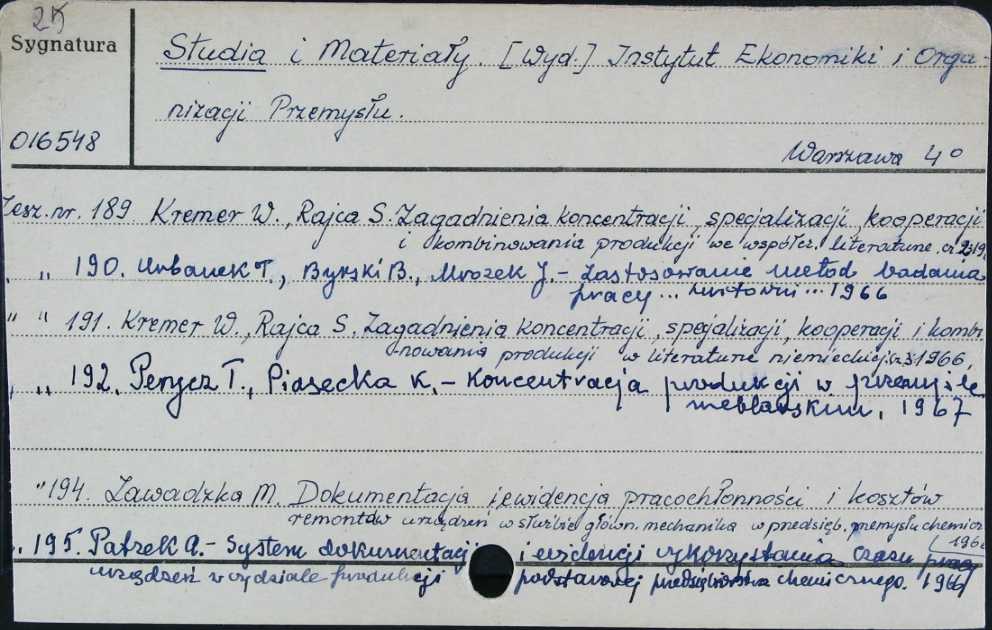 25
Sygnatura
Studia i Materiały. [Wyd.] Instytut Ekonomiki i Orga-
nizacji Przemysłu.
016548
Warszawa 4°
Zesz. nr. 189 Kremer W., Rajca S. Zagadnienia koncentracji, specjalizacji, kooperacji
i kombinowania produkcji we współcz. literaturze. cz. 2
" 190. Urbanek T., Byrski B., Mrozek J. - Zastosowanie metod badania
pracy ... 1966
" " 191. Kremer W., Rajca S. Zagadnienia koncentracji, specjalizacji, kooperacji i kombi-
nowania produkcji w literaturze niemieckiej. cz. 3. 1966,
" " 192. Perycz T., Piasecka K. - Koncentracja produkcji w przemyśle
meblarskim, 1967
" 194. Zawadzka M. Dokumentacja i ewidencja pracochłonności i kosztów
remontów urządzeń w służbie główn. mechanika w przedsięb. przemysłu chemicz
196
" 195. Patzek A. - System dokumentacji i ewidencji wykorzystania czasu pracy
urządzeń w wydziale produkcji podstawowej przedsiębiorstwa chemicznego. 1966